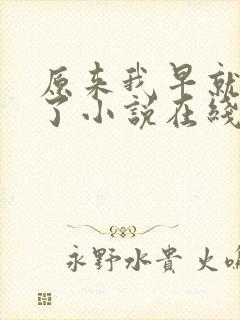 原来我早就
了小説在綫
永野水貴 火鳴